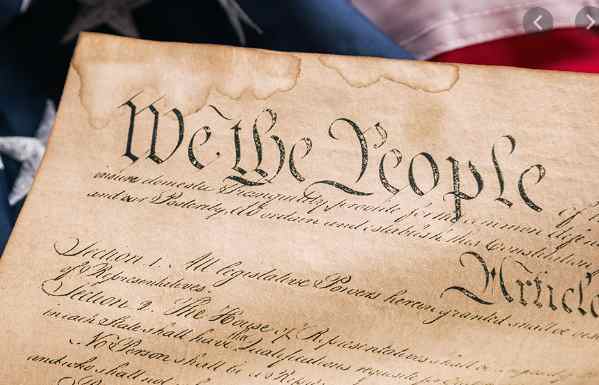 We the People of th
insure domestic Tranquility, provide for the common defence
and our Posterity, do ordain and establish this Constitution
Article
Section 1. All legislative Powers herein granted shall be vest
of Representatives.
Section 2. The House of Representatives shall be composed of
in each State shall have the Qualifications requisite
No Person shall be a Repres
and who shall not